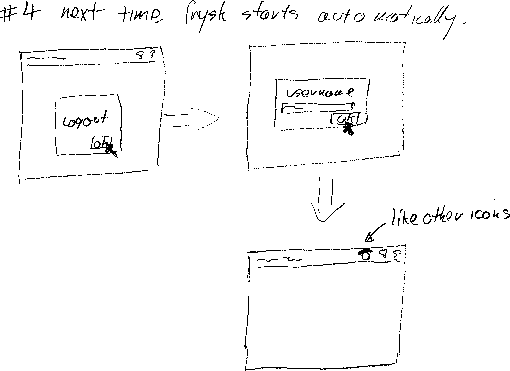 #4 next time frysk starts automatically.
Logout
OK
username
OK
like other icons